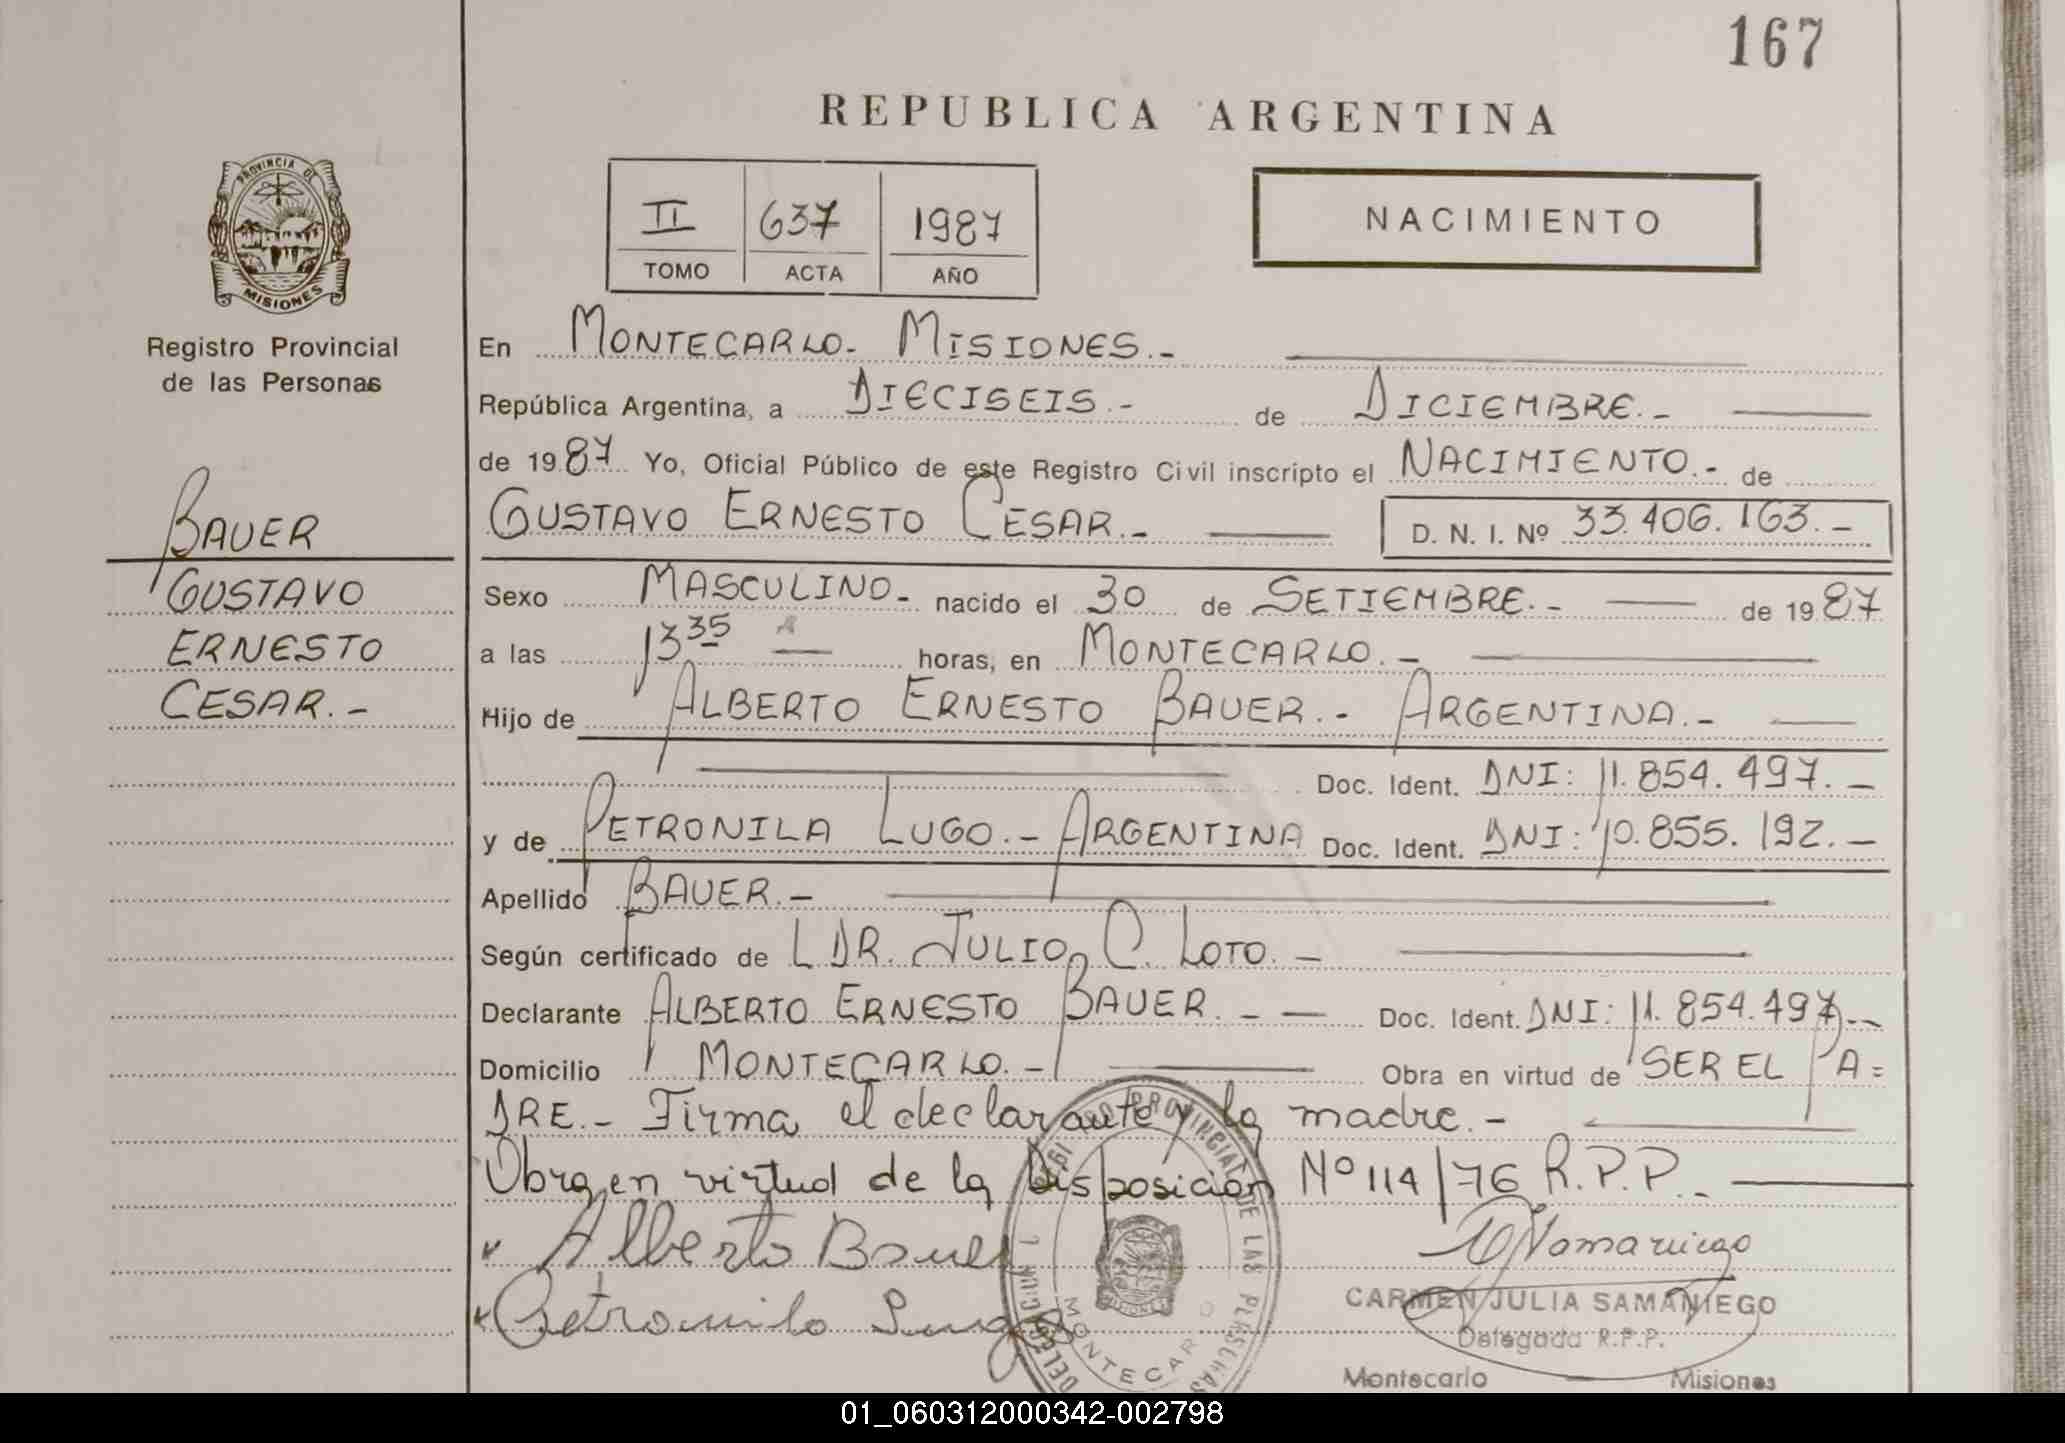 167
REPUBLICA ARGENTINA
PROVINCIA DE
MISIONES
II 637 1987
TOMO ACTA AÑO
NACIMIENTO
Registro Provincial
de las Personas
BAUER
GUSTAVO
ERNESTO
CESAR.-
En MONTECARLO- MISIONES.-
República Argentina, a DIECISEIS.- de DICIEMBRE.-
de 1987 Yo, Oficial Público de este Registro Civil inscripto el NACIMIENTO.- de
GUSTAVO ERNESTO CESAR.- D. N. I. Nº 33.406.163.-
Sexo MASCULINO- nacido el 30 de SETIEMBRE.- de 1987
a las 13 35 horas, en MONTECARLO.-
Hijo de ALBERTO ERNESTO BAUER.- ARGENTINA.-
Doc. Ident. DNI: 11.854.497.-
y de PETRONILA LUGO.- ARGENTINA Doc. Ident. DNI: 10.855.192.-
Apellido BAUER.-
Según certificado de L DR. JULIO C. LOTO.-
Declarante ALBERTO ERNESTO BAUER.- Doc. Ident. DNI: 11.854.497.-
Domicilio MONTECARLO.- Obra en virtud de SER EL PA=
DRE.- Firma el declarante y la madre.-
Obra en virtud de la Disposición Nº 114/76 R.P.P.-
Alberto Bauer
Petronila Lugo
PROVINCIAL DE LAS PERSONAS
MONTECARLO
MISIONES
CARMEN JULIA SAMANIEGO
Delegada R.P.P.
Montecarlo Misiones
01_060312000342-002798